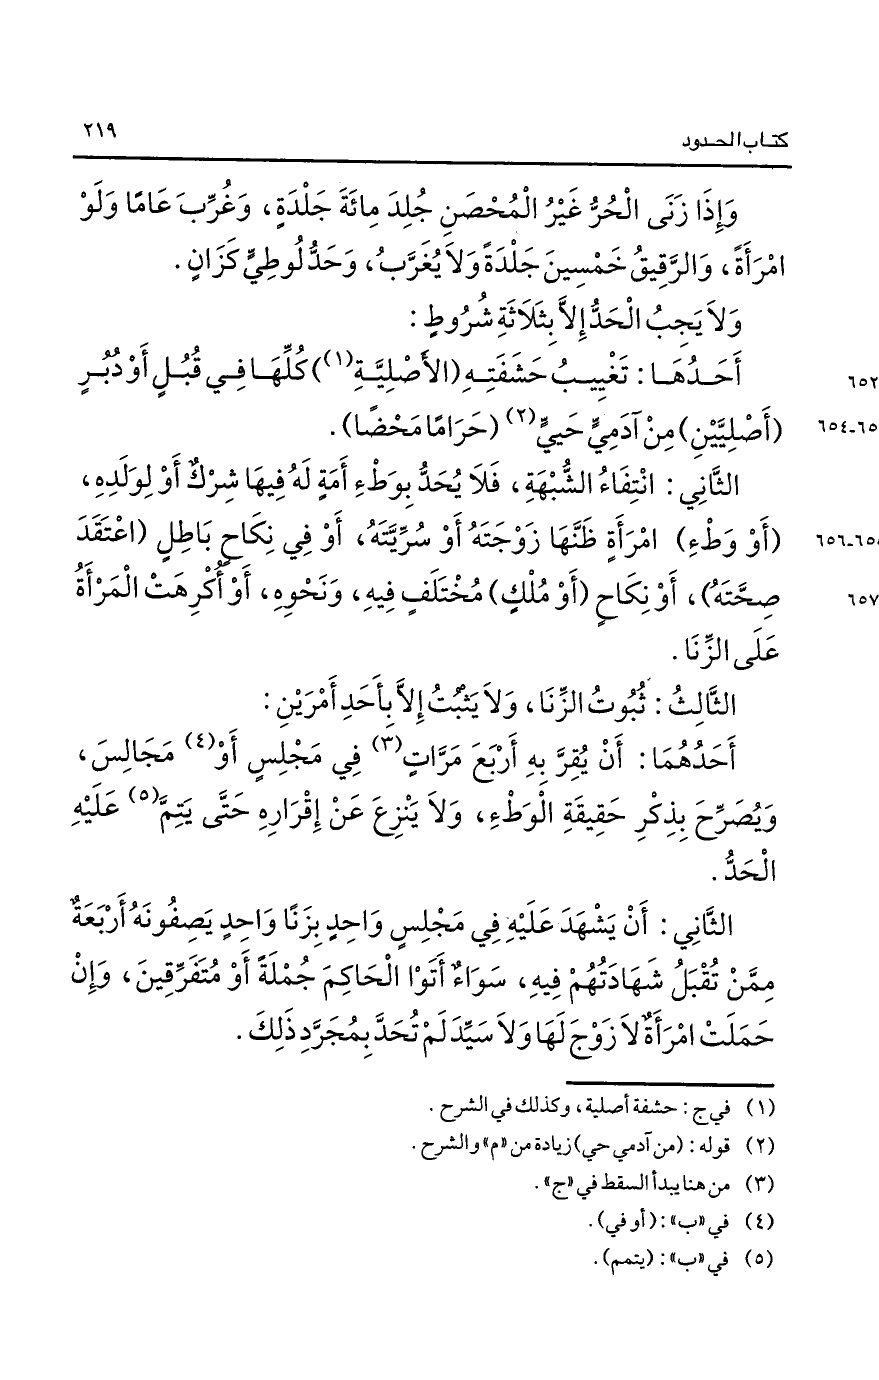 كتاب الحدود ٢١٩
وَإِذَا زَنَى الْحُرُّ غَيْرُ الْمُحْصَنِ جُلِدَ مِائَةَ جَلْدَةٍ، وَغُرِّبَ عَامًا وَلَوْ
امْرَأَةً، وَالرَّقِيقُ خَمْسِينَ جَلْدَةً وَلاَ يُغَرَّبُ، وَحَدُّ لُوطِيٍّ كَزَانٍ.
وَلاَ يَجِبُ الْحَدُّ إِلاَّ بِثَلاَثَةِ شُرُوطٍ:
أَحَدُهَا: تَغْيِيبُ حَشَفَتِهِ (الأَصْلِيَّةِ(١)) كُلِّهَا فِي قُبُلٍ أَوْ دُبُرٍ ٦٥٢
(أَصْلِيَّيْنِ) مِنْ آدَمِيٍّ حَيٍّ(٢) (حَرَامًا مَحْضًا). ٦٥٤-٦٥
الثَّانِي: انْتِفَاءُ الشُّبْهَةِ، فَلاَ يُحَدُّ بِوَطْءِ أَمَةٍ لَهُ فِيهَا شِرْكٌ أَوْ لِوَلَدِهِ،
(أَوْ وَطْءِ) امْرَأَةٍ ظَنَّهَا زَوْجَتَهُ أَوْ سُرِّيَّتَهُ، أَوْ فِي نِكَاحٍ بَاطِلٍ (اعْتَقَدَ ٦٥٦-٦٥٥
صِحَّتَهُ)، أَوْ نِكَاحٍ (أَوْ مُلْكٍ) مُخْتَلَفٍ فِيهِ، وَنَحْوِهِ، أَوْ أُكْرِهَتْ الْمَرْأَةُ ٦٥٧
عَلَى الزِّنَا.
الثَّالِثُ: ثُبُوتُ الزِّنَا، وَلاَ يَثْبُتُ إِلاَّ بِأَحَدِ أَمْرَيْنِ:
أَحَدُهُمَا: أَنْ يُقِرَّ بِهِ أَرْبَعَ مَرَّاتٍ(٣) فِي مَجْلِسٍ أَوْ(٤) مَجَالِسَ،
وَيُصَرِّحَ بِذِكْرِ حَقِيقَةِ الْوَطْءِ، وَلاَ يَنْزِعَ عَنْ إِقْرَارِهِ حَتَّى يَتِمَّ(٥) عَلَيْهِ
الْحَدُّ.
الثَّانِي: أَنْ يَشْهَدَ عَلَيْهِ فِي مَجْلِسٍ وَاحِدٍ بِزَنًا وَاحِدٍ يَصِفُونَهُ أَرْبَعَةٌ
مِمَّنْ تُقْبَلُ شَهَادَتُهُمْ فِيهِ، سَوَاءٌ أَتَوْا الْحَاكِمَ جُمْلَةً أَوْ مُتَفَرِّقِينَ، وَإِنْ
حَمَلَتْ امْرَأَةٌ لاَ زَوْجَ لَهَا وَلاَ سَيِّدَ لَمْ تُحَدَّ بِمُجَرَّدِ ذَلِكَ.
(١) في ج: حشفة أصلية، وكذلك في الشرح.
(٢) قوله: (من آدمي حي) زيادة من «م» والشرح.
(٣) من هنا يبدأ السقط في «ج».
(٤) في «ب»: (أو في).
(٥) في «ب»: (يتمم).